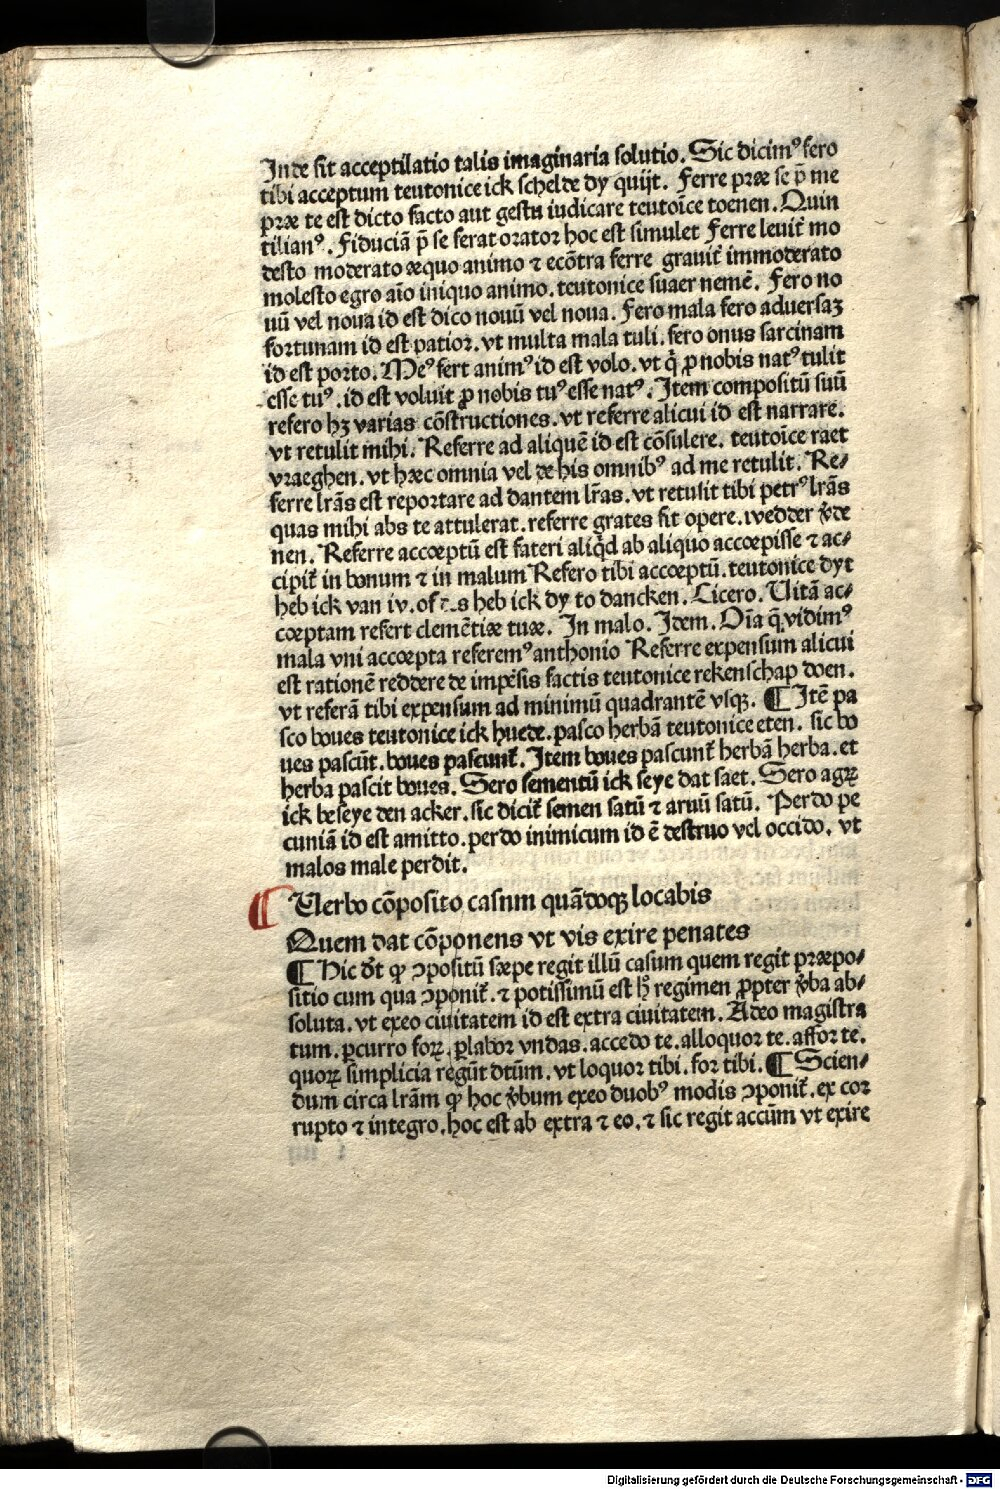 Inde fit acceptilatio talis imaginaria solutio. Sic dicimꝰ fero
tibi acceptum teutonice ick schelde dy quijt. Ferre præ se p̄ me
præ te est dicto facto aut gestu iudicare teutoīce toenen. Quin
tilianꝰ. Fiduciā p̄ se ferat orator hoc est simulet Ferre leuit᷑ mo
desto moderato æquo animo ⁊ ecōtra ferre grauit᷑ immoderato
molesto egro aīo iniquo animo. teutonice suaer nemē. Fero no
uū vel noua id est dico nouū vel noua. Fero mala fero aduersaꝫ
fortunam id est patior. vt multa mala tuli. fero onus sarcinam
id est porto. Meꝰ fert animꝰ id est volo. vt q̄ ꝓ nobis natꝰ tulit
esse tuꝰ. id est voluit ꝓ nobis tuꝰ esse natꝰ. Item compositū suū
refero hꝫ varias cōstructiones. vt referre alicui id est narrare.
vt retulit mihi. Referre ad aliquē id est cōsulere. teutoīce raet
vraeghen. vt hæc omnia vel de his omnibꝰ ad me retulit. Re-
ferre lr̄as est reportare ad dantem lr̄as. vt retulit tibi petrꝰ lr̄as
quas mihi abs te attulerat. referre grates fit opere. wedder v̄de
nen. Referre accœptū est fateri aliq̄d ab aliquo accœpisse ⁊ ac-
cipit᷑ in bonum ⁊ in malum Refero tibi accœptū. teutonice dyt
heb ick van iv. of s heb ick dy to dancken. Cicero. Uitā ac-
cœptam refert clemētiæ tuæ. In malo. Idem. Oīa q̄ vidimꝰ
mala vni accœpta referemꝰ anthonio Referre expensum alicui
est rationē reddere de impēsis factis teutonice rekenschap doen.
vt referā tibi expensum ad minimū quadrantē vsqꝫ. ¶ Itē pa
sco boues teutonice ick huede. pasco herbā teutonice eten. sic bo
ues pascūt. boues pascunt᷑. Item boues pascunt᷑ herbā herba. et
herba pascit boues. Sero sementū ick seye dat saet. Sero agrꝝ
ick beseye den acker. sic dicit᷑ semen satū ⁊ aruū satū. Perdo pe
cuniā id est amitto. perdo inimicum id ē destruo vel occido. vt
malos male perdit.
¶ Uerbo cōposito casum quādoqꝫ locabis
Quem dat cōponens vt vis exire penates
¶ Hic dr̄t ꝙ ↄpositū sæpe regit illū casum quem regit præpo-
sitio cum qua ↄponit᷑. ⁊ potissimū est hꝰ regimen ꝓpter v̄ba ab-
soluta. vt exeo ciuitatem id est extra ciuitatem. Adeo magistra
tum. ꝑcurro forꝝ. p̄labor vndas. accedo te. alloquor te. affor te.
quorꝝ simplicia regūt dtūm. vt loquor tibi. for tibi. ¶ Scien-
dum circa lr̄am ꝙ hoc v̄bum exeo duobꝰ modis ↄponit᷑. ex cor
rupto ⁊ integro. hoc est ab extra ⁊ eo. ⁊ sic regit accūm vt exire
Digitalisierung gefördert durch die Deutsche Forschungsgemeinschaft - DFG